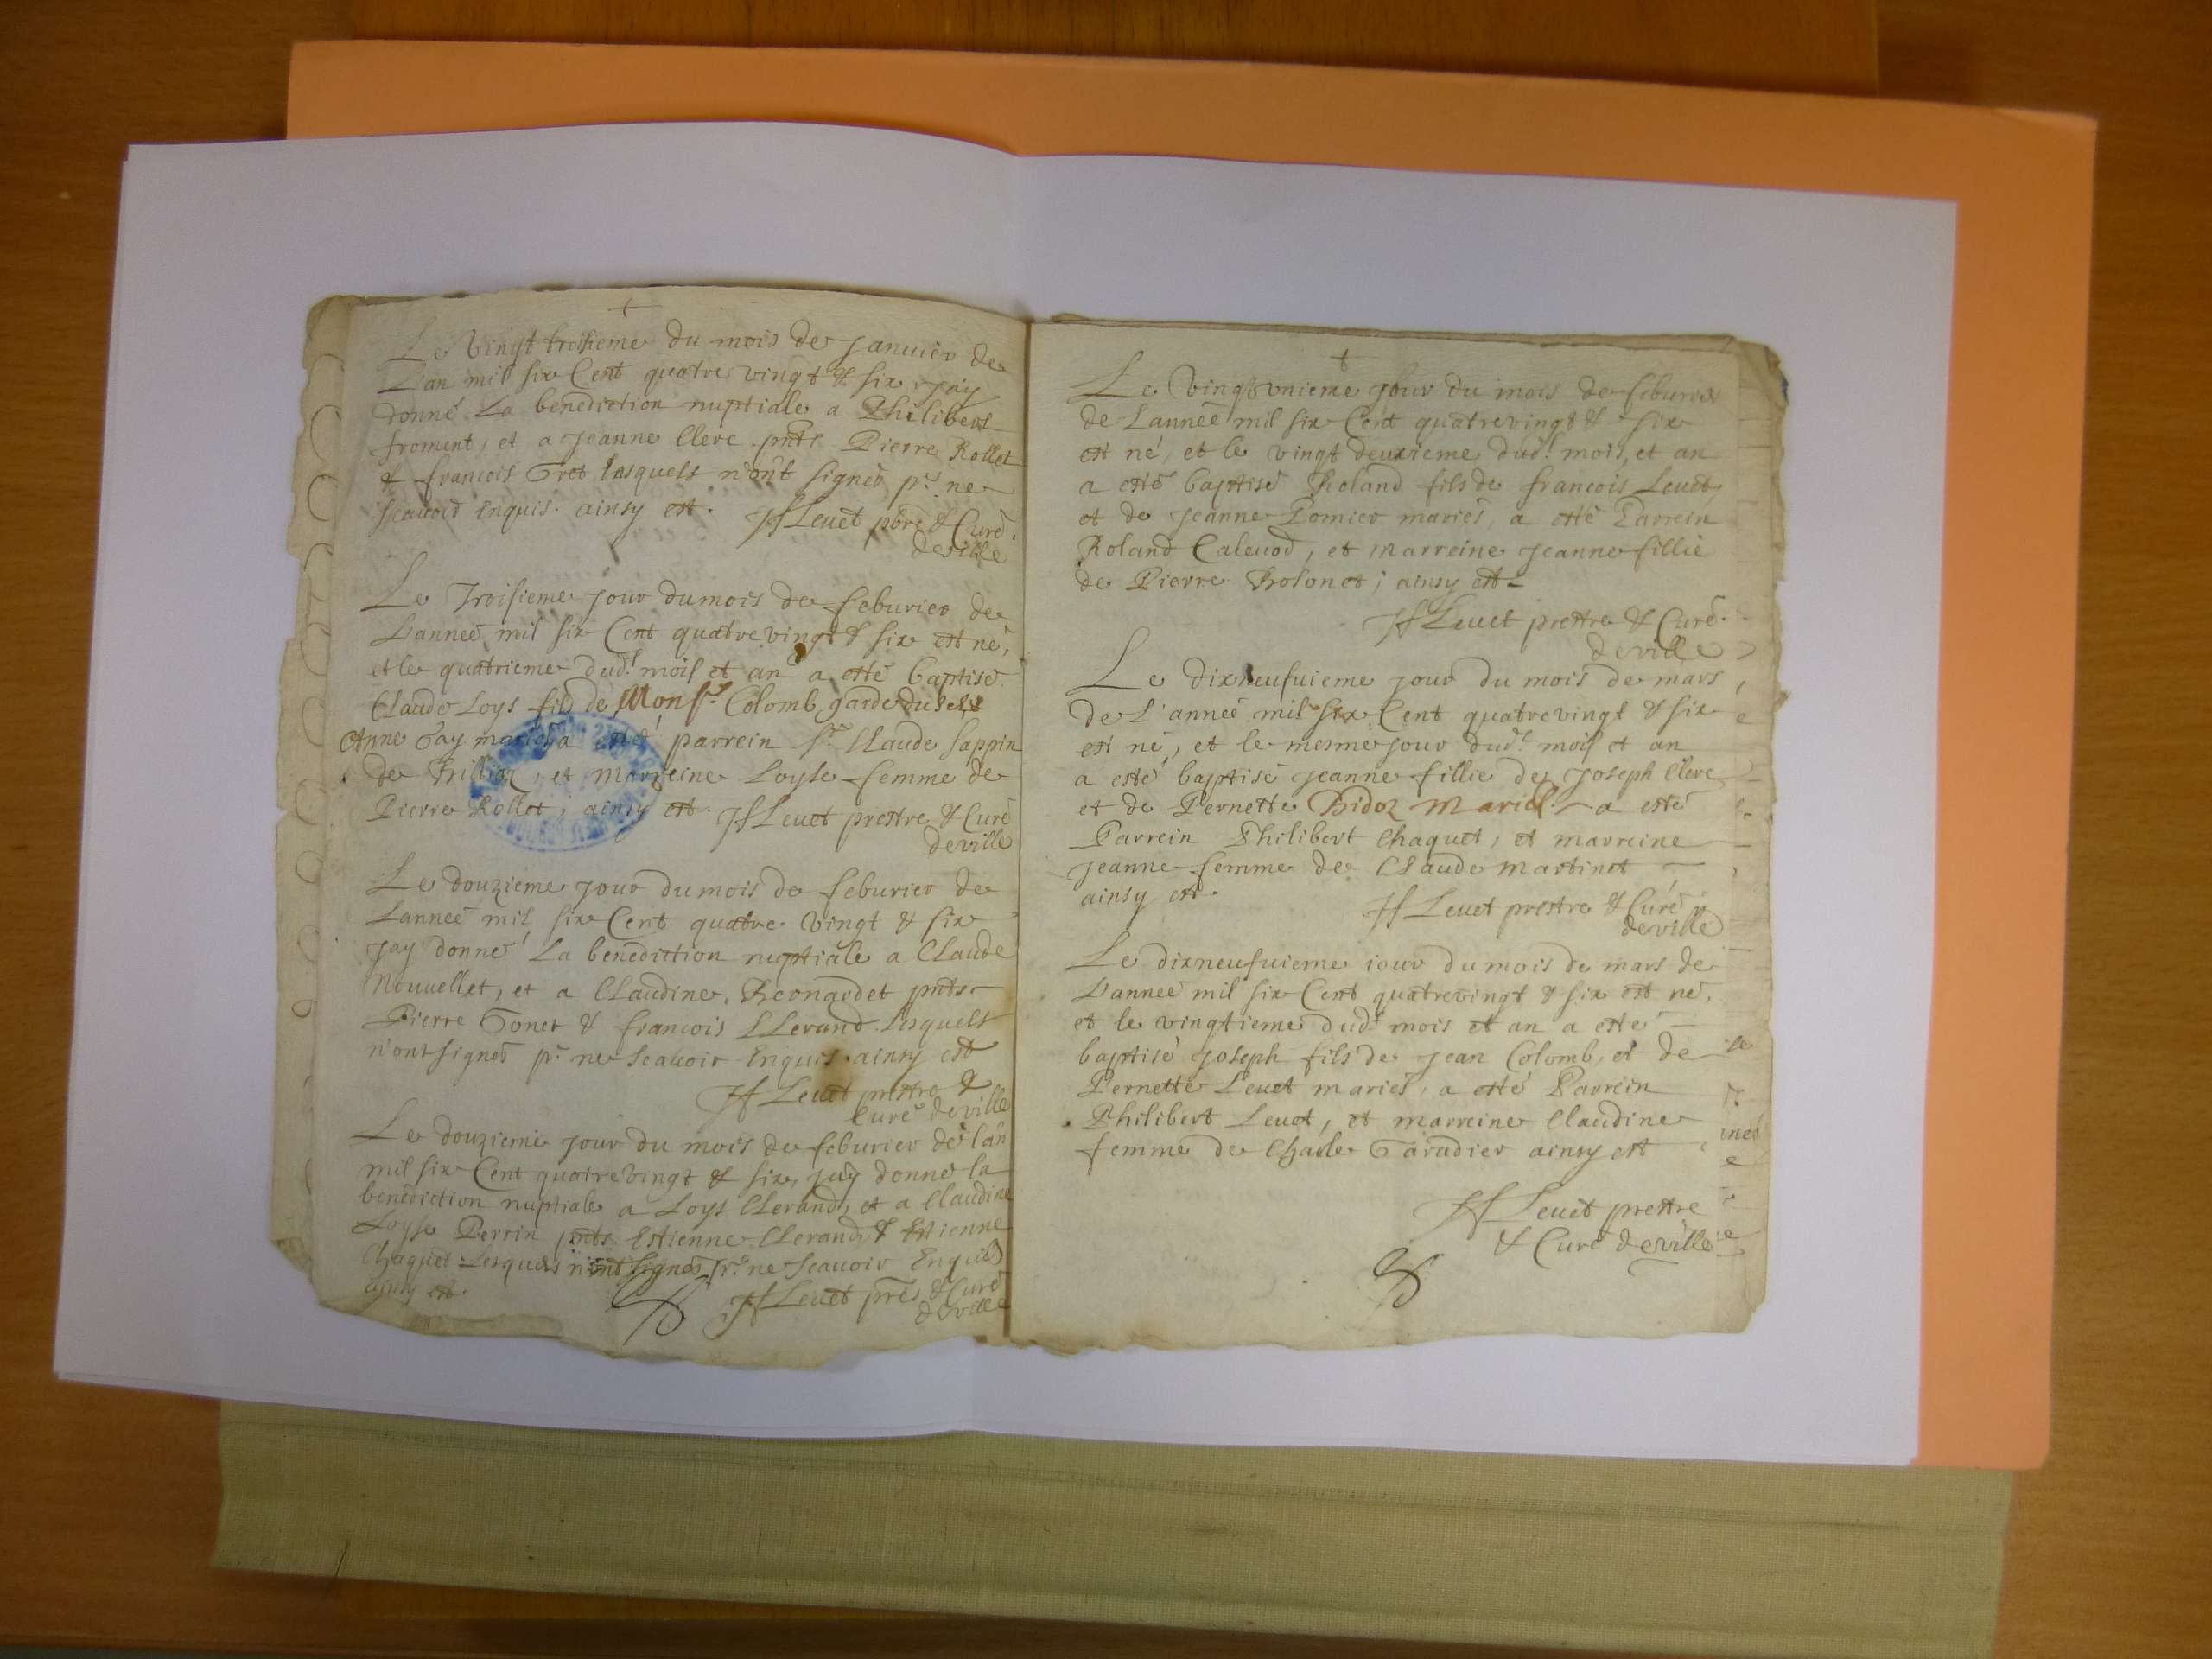 Le vingt troisieme du mois de Januier de
L'an mil six Cent quatre vingt & six Jay
donné La benediction nuptiale a Philibert
froment, et a Jeanne Clerc pnts Pierre Rollet
& francois Tret lesquels n'ont signes pr. ne
scauoir Enquis. ainsy est. Leuet pbre & Curé
deville
Le Troisieme jour du mois de feburier de
L'anneé mil six Cent quatre vingt & six est né,
et le quatrieme dudt mois et an a esté baptisé
Claude Loys fils de Monsr. Colomb garde du
Anne Tay mariés a esté parrein Sr. Claude Sappin
de et marreine Loyse femme de
Pierre Rollet, ainsy est. Leuet prestre & Curé
deville
Le douzieme jour du mois de feburier de
L'anneé mil six Cent quatre vingt & six
Jay donné La benediction nuptiale a Claude
Nouuellet, et a Claudine Reonardet pnts
Pierre Tonet & francois Clerand Lesquels
n'ont signes pr. ne scauoir Enquis. ainsy est
Leuet prestre &
Curé deville
Le douzieme jour du mois de feburier de l'an
mil six Cent quatre vingt & six, jay donné la
benediction nuptiale a Loys Clerand, et a Claudine
Loyse Perrin pnts Estienne Clerand & Estienne
Chaquet Lesquels n'ont signes pr. ne scauoir Enquis
ainsy est. Leuet pres & Curé
deville
Le vingt vnieme jour du mois de feburier
de L'anneé mil six Cent quatrevingt & six
est né, et le vingt deuxieme dudt. mois, et an
a esté baptisé Roland fils de francois Leuet
et de Jeanne Pomier mariés, a esté Parrein
Roland Caleuod, et marreine Jeanne fillie
de Pierre Brolonet; ainsy est
Leuet prestre & Curé
deville
Le dixneufuieme jour du mois de mars
de L'anneé mil six Cent quatrevingt & six
est né, et le mesme jour dudt. mois et an
a esté baptisé Jeanne fillie de Joseph Clerc
et de Pernette Bidoz mariés a esté
Parrein Philibert Chaquet, et marreine
Jeanne femme de Claude Martinet
ainsy est. Leuet prestre & Curé
deville
Le dixneufuieme iour du mois de mars de
L'anneé mil six Cent quatrevingt & six est né,
et le vingtieme dudt mois et an a esté
baptisé Joseph fils de Jean Colomb, et de
Pernette Leuet mariés, a esté Parrein
Philibert Leuet, et marreine Claudine
femme de Charle Taradier ainsy est
Leuet prestre
& Curé deville